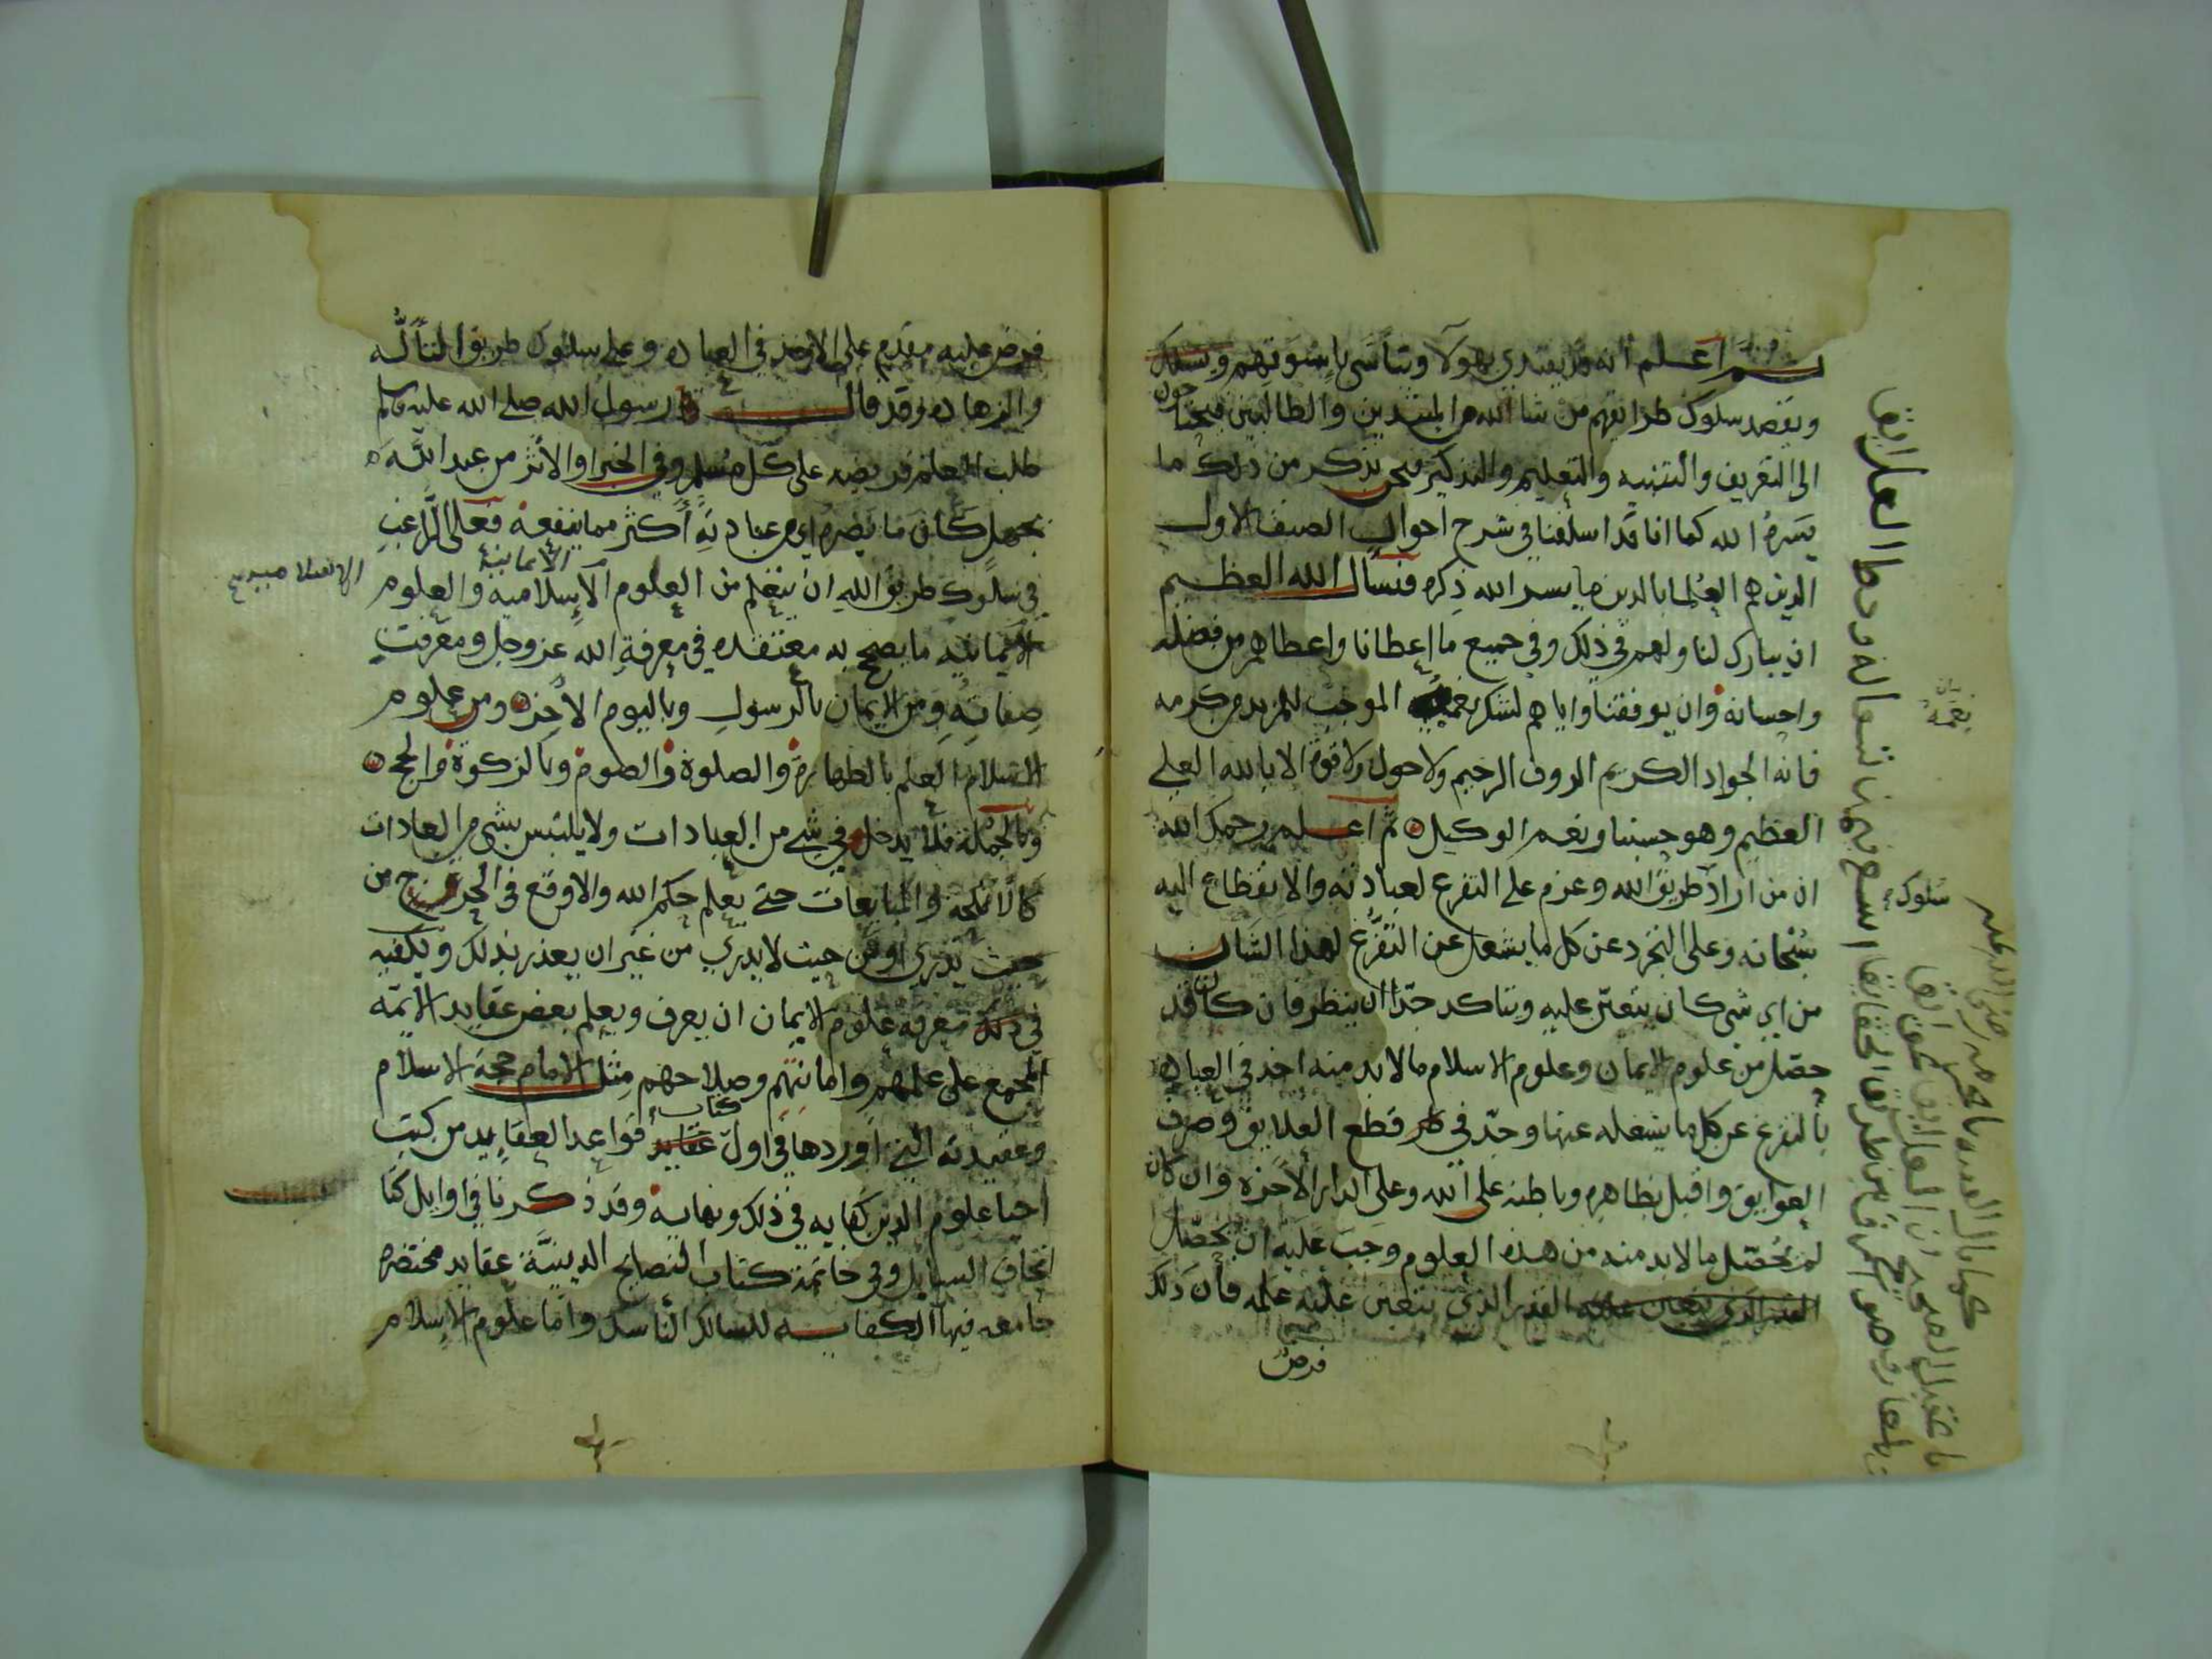 ثم اعلم انه قد يقتدي بهولا ويتأسى باسوتهم ويسلك
ويقصد سلوك طرائقهم من شا الله من المبتدين والطالبين فيحتاجون
الى التعريف والتنبيه والتعليم والتذكير فنحن نذكر من ذلك ما
يسره الله كما انا قد اسلفنا في شرح احوال الصنف الاول
الذين هم العلما بالدين ما يسر الله ذكره فنسأل الله العظيم
ان يبارك لنا ولهم في ذلك وفي جميع ما اعطانا واعطاهم من فضله
واحسانه وان يوفقنا واياهم لشكر نعمه الموجب للمزيد من كرمه
فانه الجواد الكريم الروف الرحيم ولا حول ولا قوة الا بالله العلي
العظيم وهو حسبنا ونعم الوكيل ثم اعلم رحمك الله
ان من اراد طريق الله وعزم على التفرغ لعبادته والانقطاع اليه
سبحانه وعلى التجرد عن كل ما يشغل عن التفرغ لهذا الشان
من اي شي كان يتعين عليه ويتاكد جدا ان ينظر فان كان قد
حصل من علوم الايمان وعلوم الاسلام ما لا بد منه اخذ في العبادة
بالتفرغ عن كل ما يشغله عنها وجد في قطع العلايق وصرف
العوايق واقبل بظاهره وباطنه على الله وعلى الدار الاخرة وان كان
لم يحصل ما لا بد منه من هذه العلوم وجب عليه ان يحصل
القدر الذي يتعين عليه علمه فان ذلك
فرض
نعمه
سلوك
فرض عليه مقدم على الاخذ في العبادة وعلى سلوك طريق التألّه
والزهادة وقد قال رسول الله صلى الله عليه وسلم
طلب العلم فريضه على كل مسلم وفي الخبر او الاثر من عبد الله
بجهل كان ما يضره من عبادته أكثر مما ينفعه فعلى الراغب
في سلوك طريق الله ان يتعلم من العلوم الاسلاميه والعلوم
الايمانية
الاسلاميه
الايمانيه ما يصح به معتقده في معرفة الله عز وجل ومعرفت
صفاته ومن الايمان بالرسول وباليوم الاخر ومن علوم
الاسلام العلم بالطهارة والصلوة والصوم وبالزكوة والحج
وبالجملة فلا يدخل في شي من العبادات ولا يلتبس بشي من العادات
كالانكحه والمبايعات حتى يعلم حكم الله والا وقع في الحرج من
حيث يدري او من حيث لا يدري من غير ان يعذر بذلك ويكفيه
في ذلك معرفه علوم الايمان ان يعرف ويعلم بعض عقايد الايمه
المجمع على علمهم وامانتهم وصلاحهم مثل الامام حجة الاسلام
وعقيدته التي اوردها في اول كتاب قواعد العقايد من كتب
احيا علوم الدين كفايه في ذلك ونهايه وقد ذكرنا في اوايل كتا
اتحاف السايل وفي خاتمة كتاب النصايح الدينيّة عقايد مختصره
جامعه فيها الكفايه للسالك الناسك واما علوم الاسلام